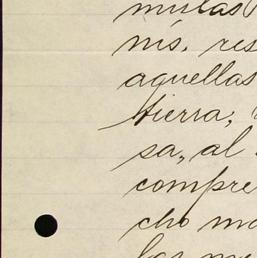 mulas
nís. res
aquellas
tierra,
sa, al
compre
cho mo